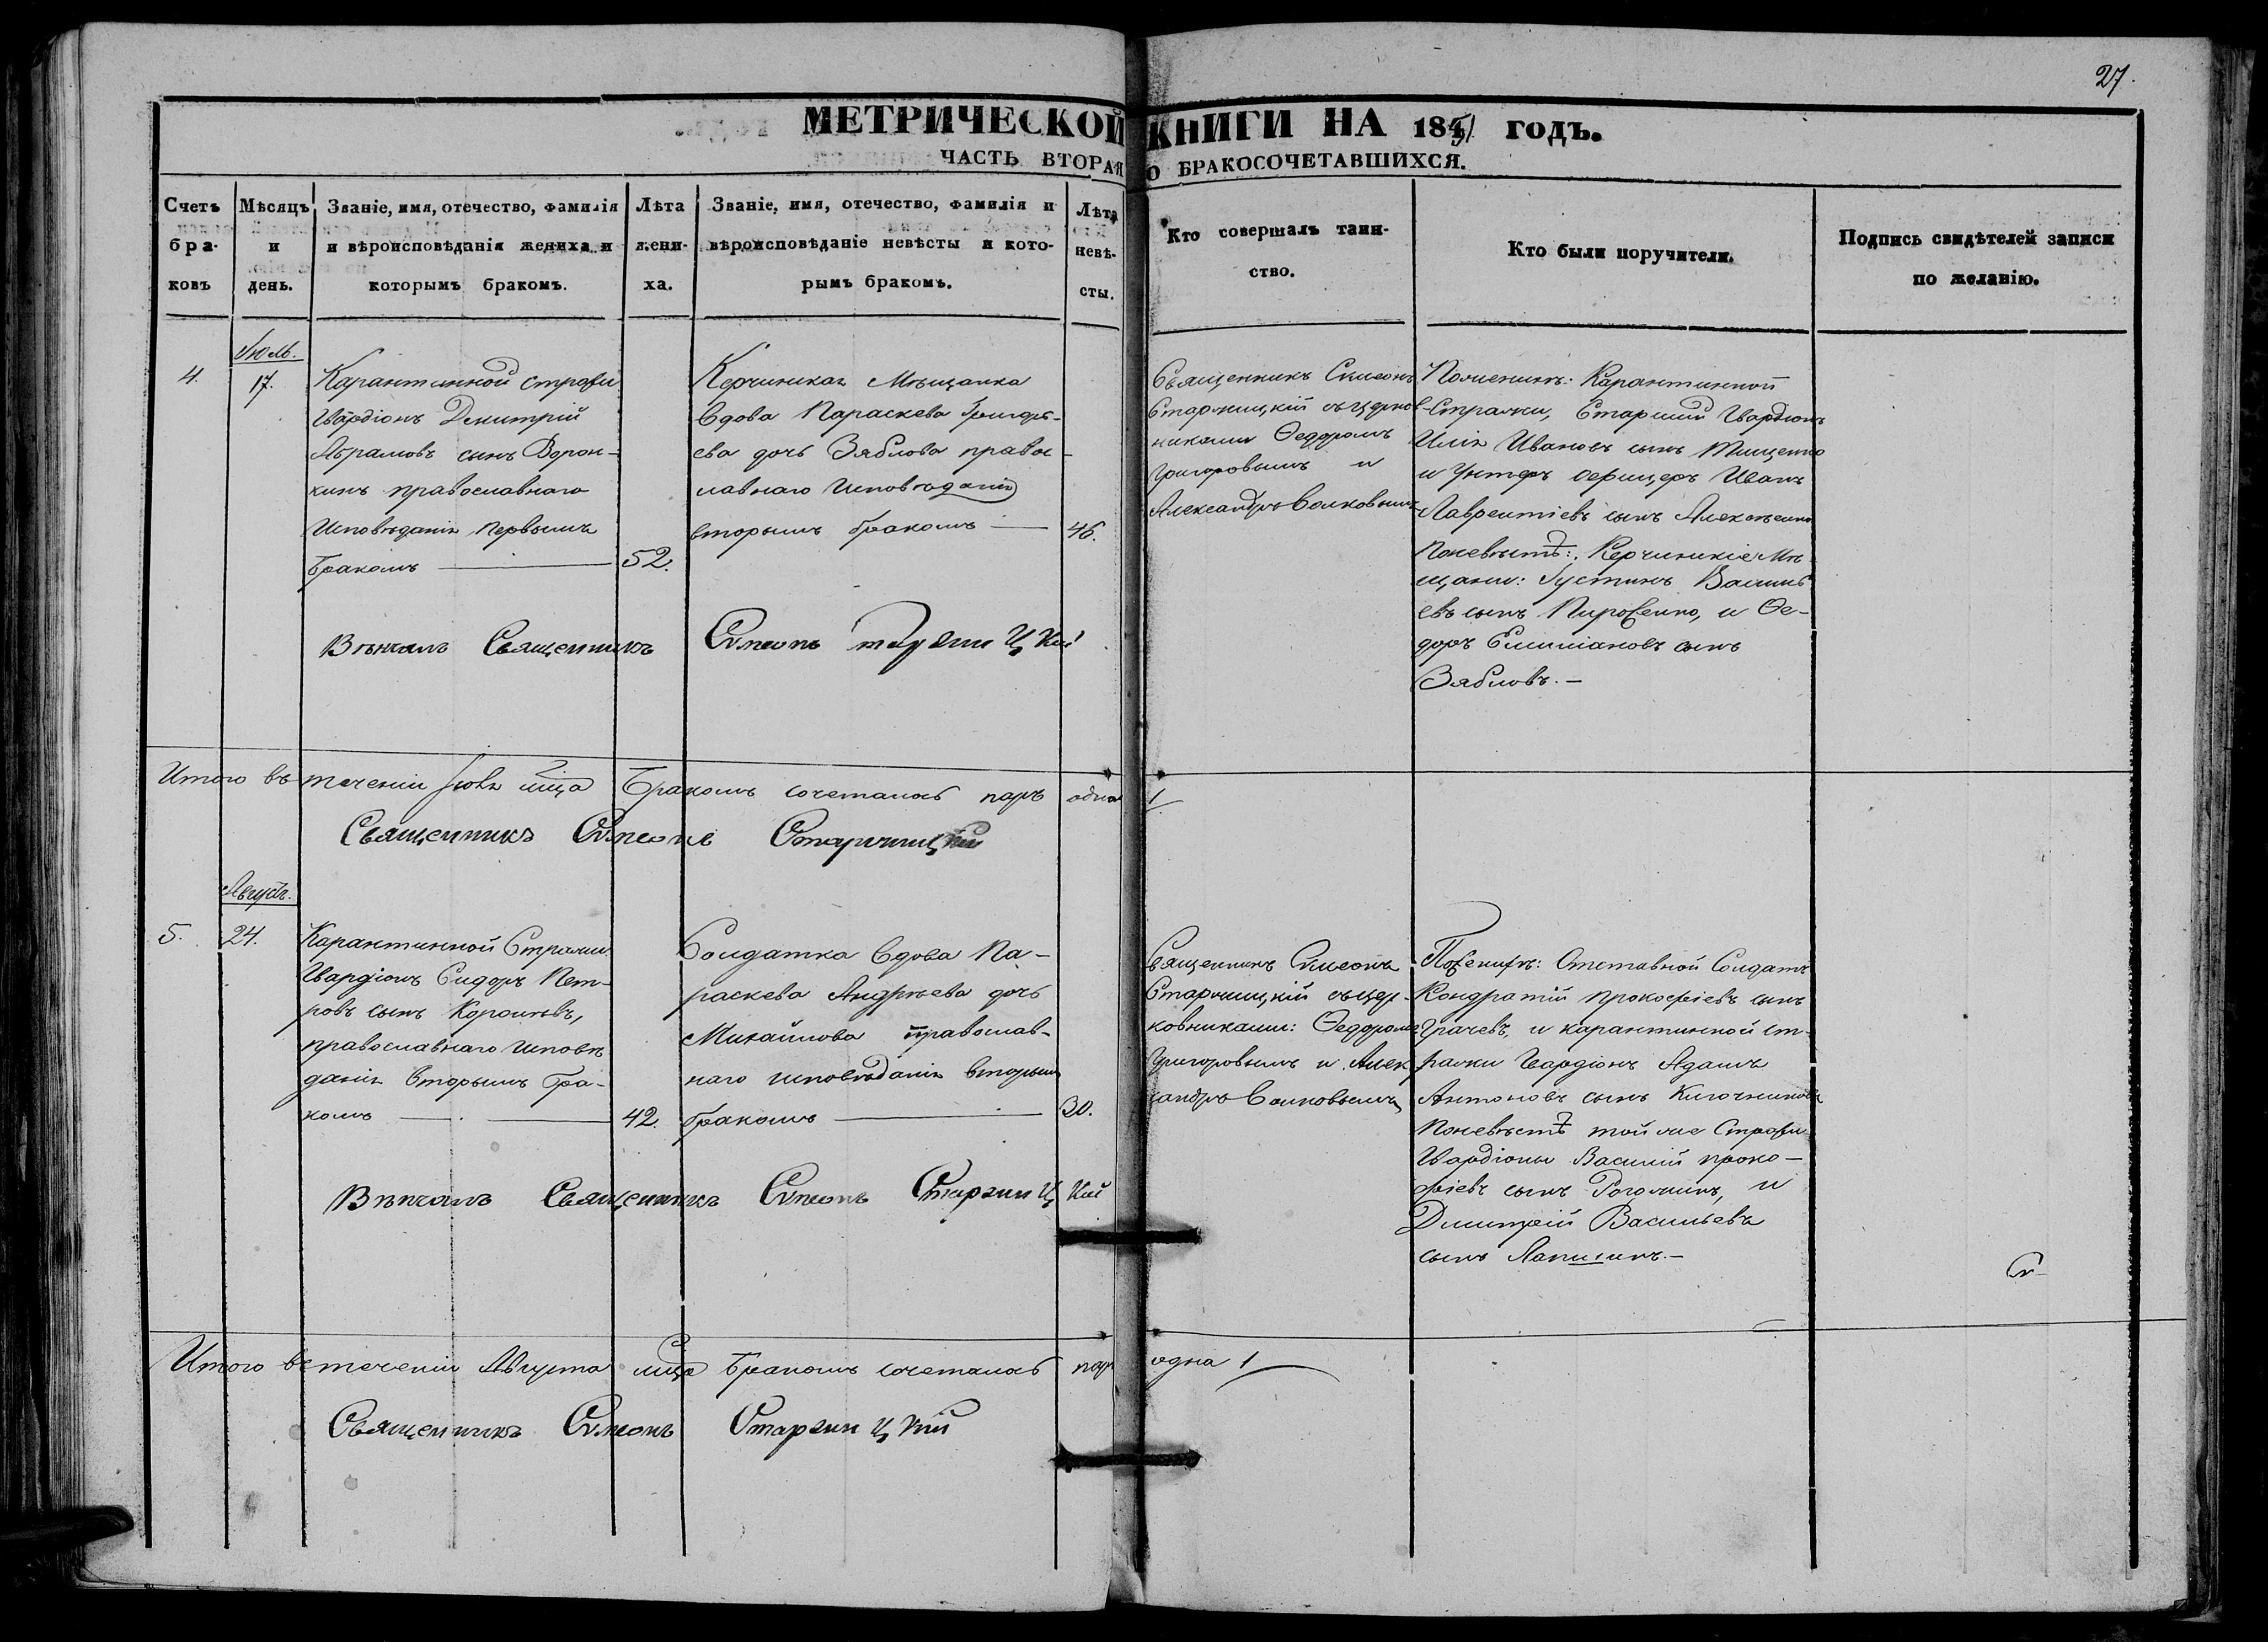 27.
МЕТРИЧЕСКОЙ КНИГИ НА 1851 ГОДЪ.
ЧАСТЬ ВТОРАЯ О БРАКОСОЧЕТАВШИХСЯ.
Счетъ бра-ковъ
Мѣсяцъ и день.
Званіе, имя, отечество, фамилія и вѣроисповѣданія жениха и которымъ бракомъ.
Лѣта жени-ха.
Званіе, имя, отечество, фамилія и вѣроисповѣданіе невѣсты и кото-рымъ бракомъ.
Лѣта невѣ-сты.
Кто совершалъ таин-ство.
Кто были поручители.
Подпись свидѣтелей записи по желанію.
Июль.
4.
17.
Карантинной стражи
Гвардіонъ Димитрій
Абрамовъ сынъ Ворон-
кинъ православнаго
Исповѣданія первымъ
бракомъ —
52.
Керчинская Мѣщанка
Вдова Параскева Григорь-
ева дочь Зяблова правос-
лавнаго Исповѣданія
вторымъ бракомъ —
46.
Священникъ Симеонъ
Старжицкій съ церков-
никами Ѳедоромъ
Григоровымъ и
Александръ Волковымъ
По женихѣ: Карантинной
Стражи, Старший Гвардіонъ
Илія Ивановъ сынъ Тищенко
и Унтеръ офицеръ Иванъ
Лаврентіевъ сынъ Алексѣенко
По невѣстѣ: Керчинскіе Мѣ-
щани: Густинъ Василь-
евъ сынъ Пироженко, и Ѳе-
доръ Емилиановъ сынъ
Зябловъ. —
Вѣнчалъ Священникъ Симеонъ Старжицкій
Итого въ теченіи Июля мца Бракомъ сочеталась паръ одна 1
Священникъ Симеонъ Старжицкій
Августъ.
5.
24.
Карантинной Стражи
Гвардіонъ Сидоръ Пет-
ровъ сынъ Королевъ,
православнаго исповѣ-
данія вторымъ бра-
комъ —
42.
Солдатка Вдова Па-
раскева Андрѣева дочь
Михайлова православ-
наго исповѣданія вторымъ
бракомъ —
30.
Священникъ Симеонъ
Старжицкій съ цер-
ковниками: Ѳедоромъ
Григоровымъ и Алек
сандръ Волковымъ
По женихѣ: Отставной Солдатъ
Кондратій Прокофіевъ сынъ
Грачевъ, и карантинной ст-
ражи Гвардіонъ Адамъ
Антоновъ сынъ Ключниковъ
По невѣстѣ той же Стражи
Гвардіоны Василій Проко-
фіевъ сынъ Рогожинъ, и
Димитрій Васильевъ
сынъ Лапшинъ. —
Вѣнчалъ Священникъ Симеонъ Старжицкій
Итого въ теченіи Августа мца Бракомъ сочеталась пар одна 1
Священникъ Симеонъ Старжицкій